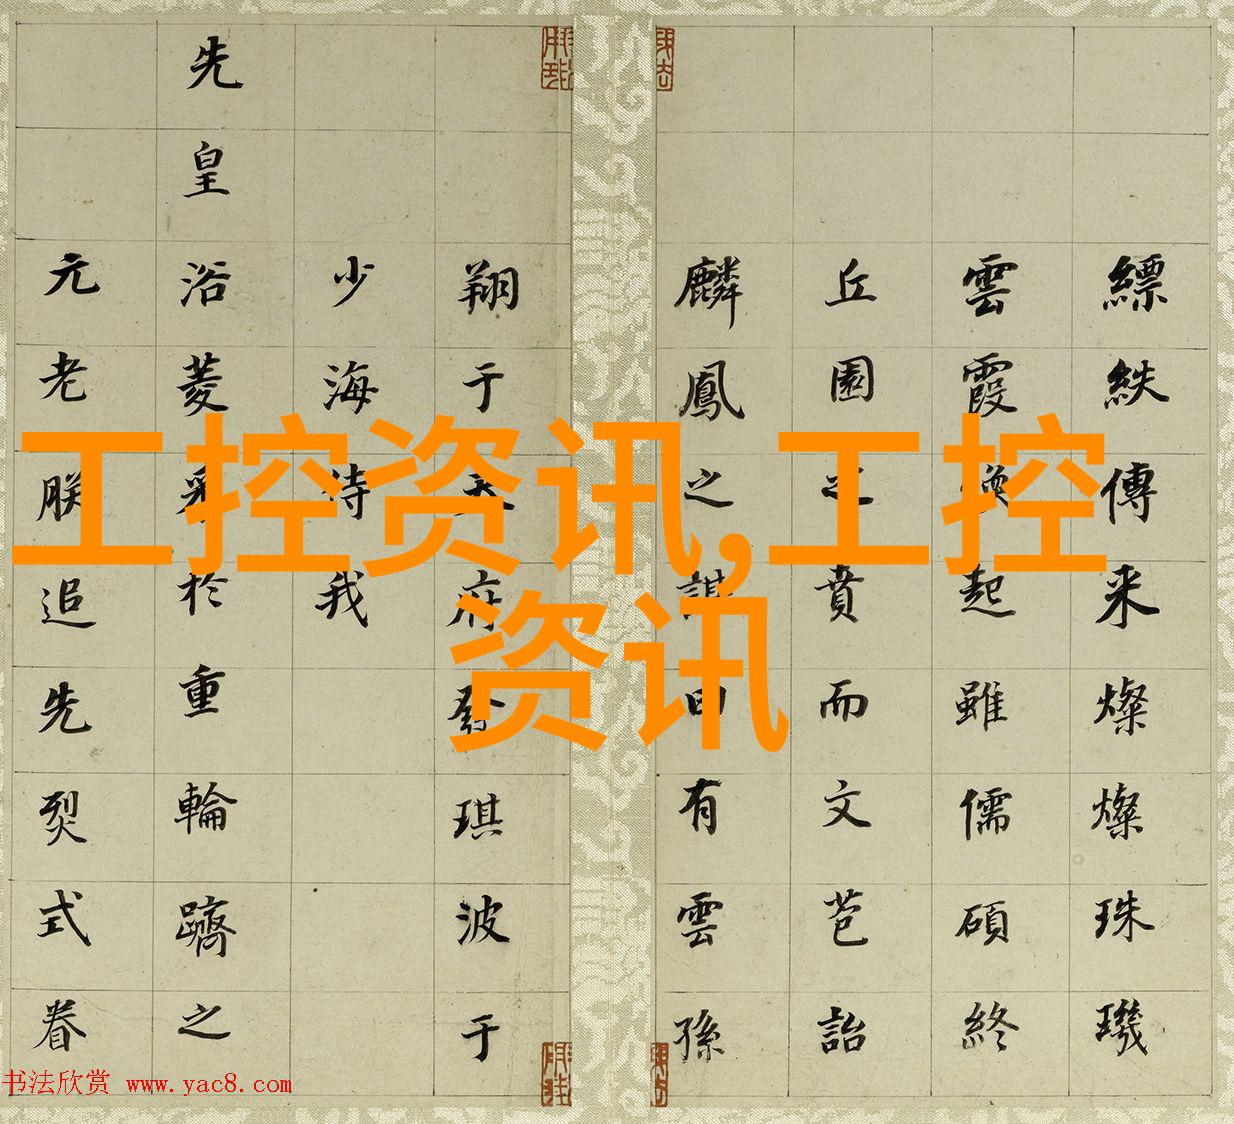 縹紩傳来燦燦珠璣
雲霞起雖儒碩終
丘園之賁而文芭詒
麟鳳之曰有雲孫
翔于天府發琪波于
少海待我
先皇浴菱彩於重輪躋之
元老朕追先烈式眷
工控资讯,工控
资讯
书法欣赏 www.yac8.com